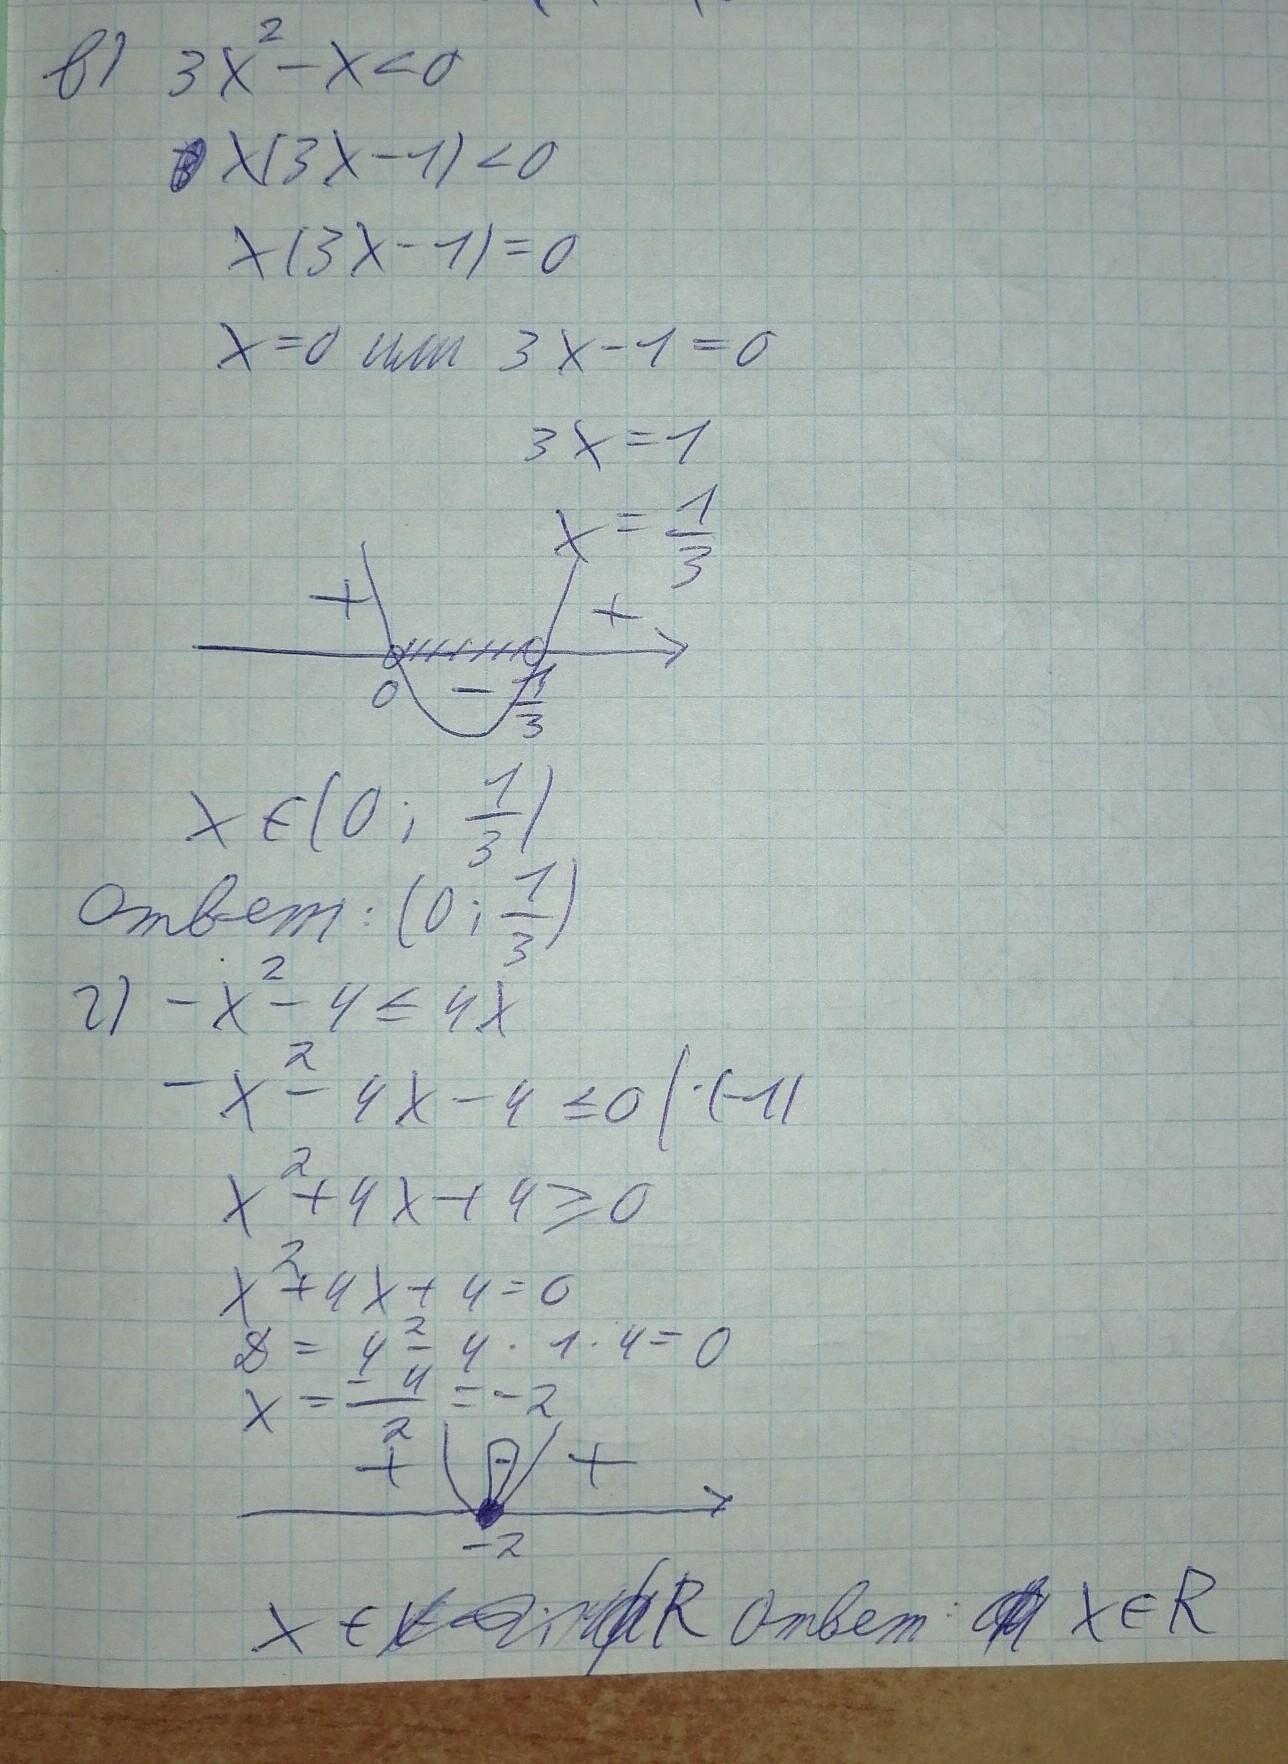 в) 3x² - x < 0
x(3x - 1) < 0
x(3x - 1) = 0
x = 0 или 3x - 1 = 0
3x = 1
x = 1/3
+ +
0 - 1/3
x ∈ (0; 1/3)
Ответ: (0; 1/3)
г) -x² - 4 ≤ 4x
-x² - 4x - 4 ≤ 0 | ·(-1)
x² + 4x + 4 ≥ 0
x² + 4x + 4 = 0
D = 4² - 4 · 1 · 4 = 0
x = -4/2 = -2
+ - +
-2
x ∈ R Ответ: x ∈ R